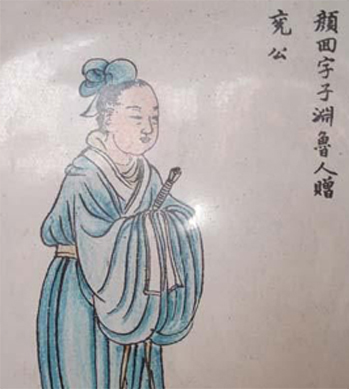 顏回字子淵魯人贈
兗公